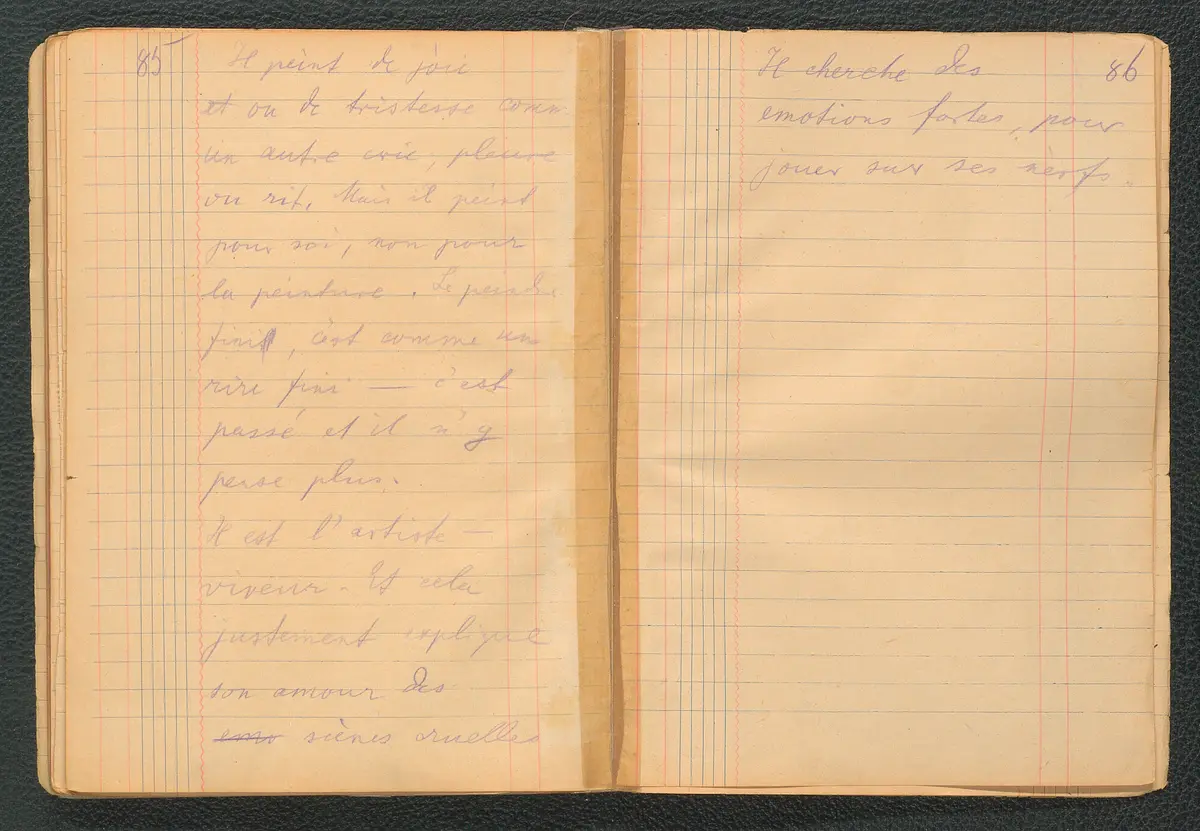 85
Il peint de joie
et ou de tristesse comm
un autre crie, pleure
ou rit. Mais il peint
pour soi, non pour
la peinture. Le peindre
fini, c'est comme un
rire fini — c'est
passé et il n'y
pense plus.
Il est l'artiste —
viveur. Et cela
justement explique
son amour des
emo scènes cruelles
86
Il cherche des
emotions fortes, pour
jouer sur ses nerfs.